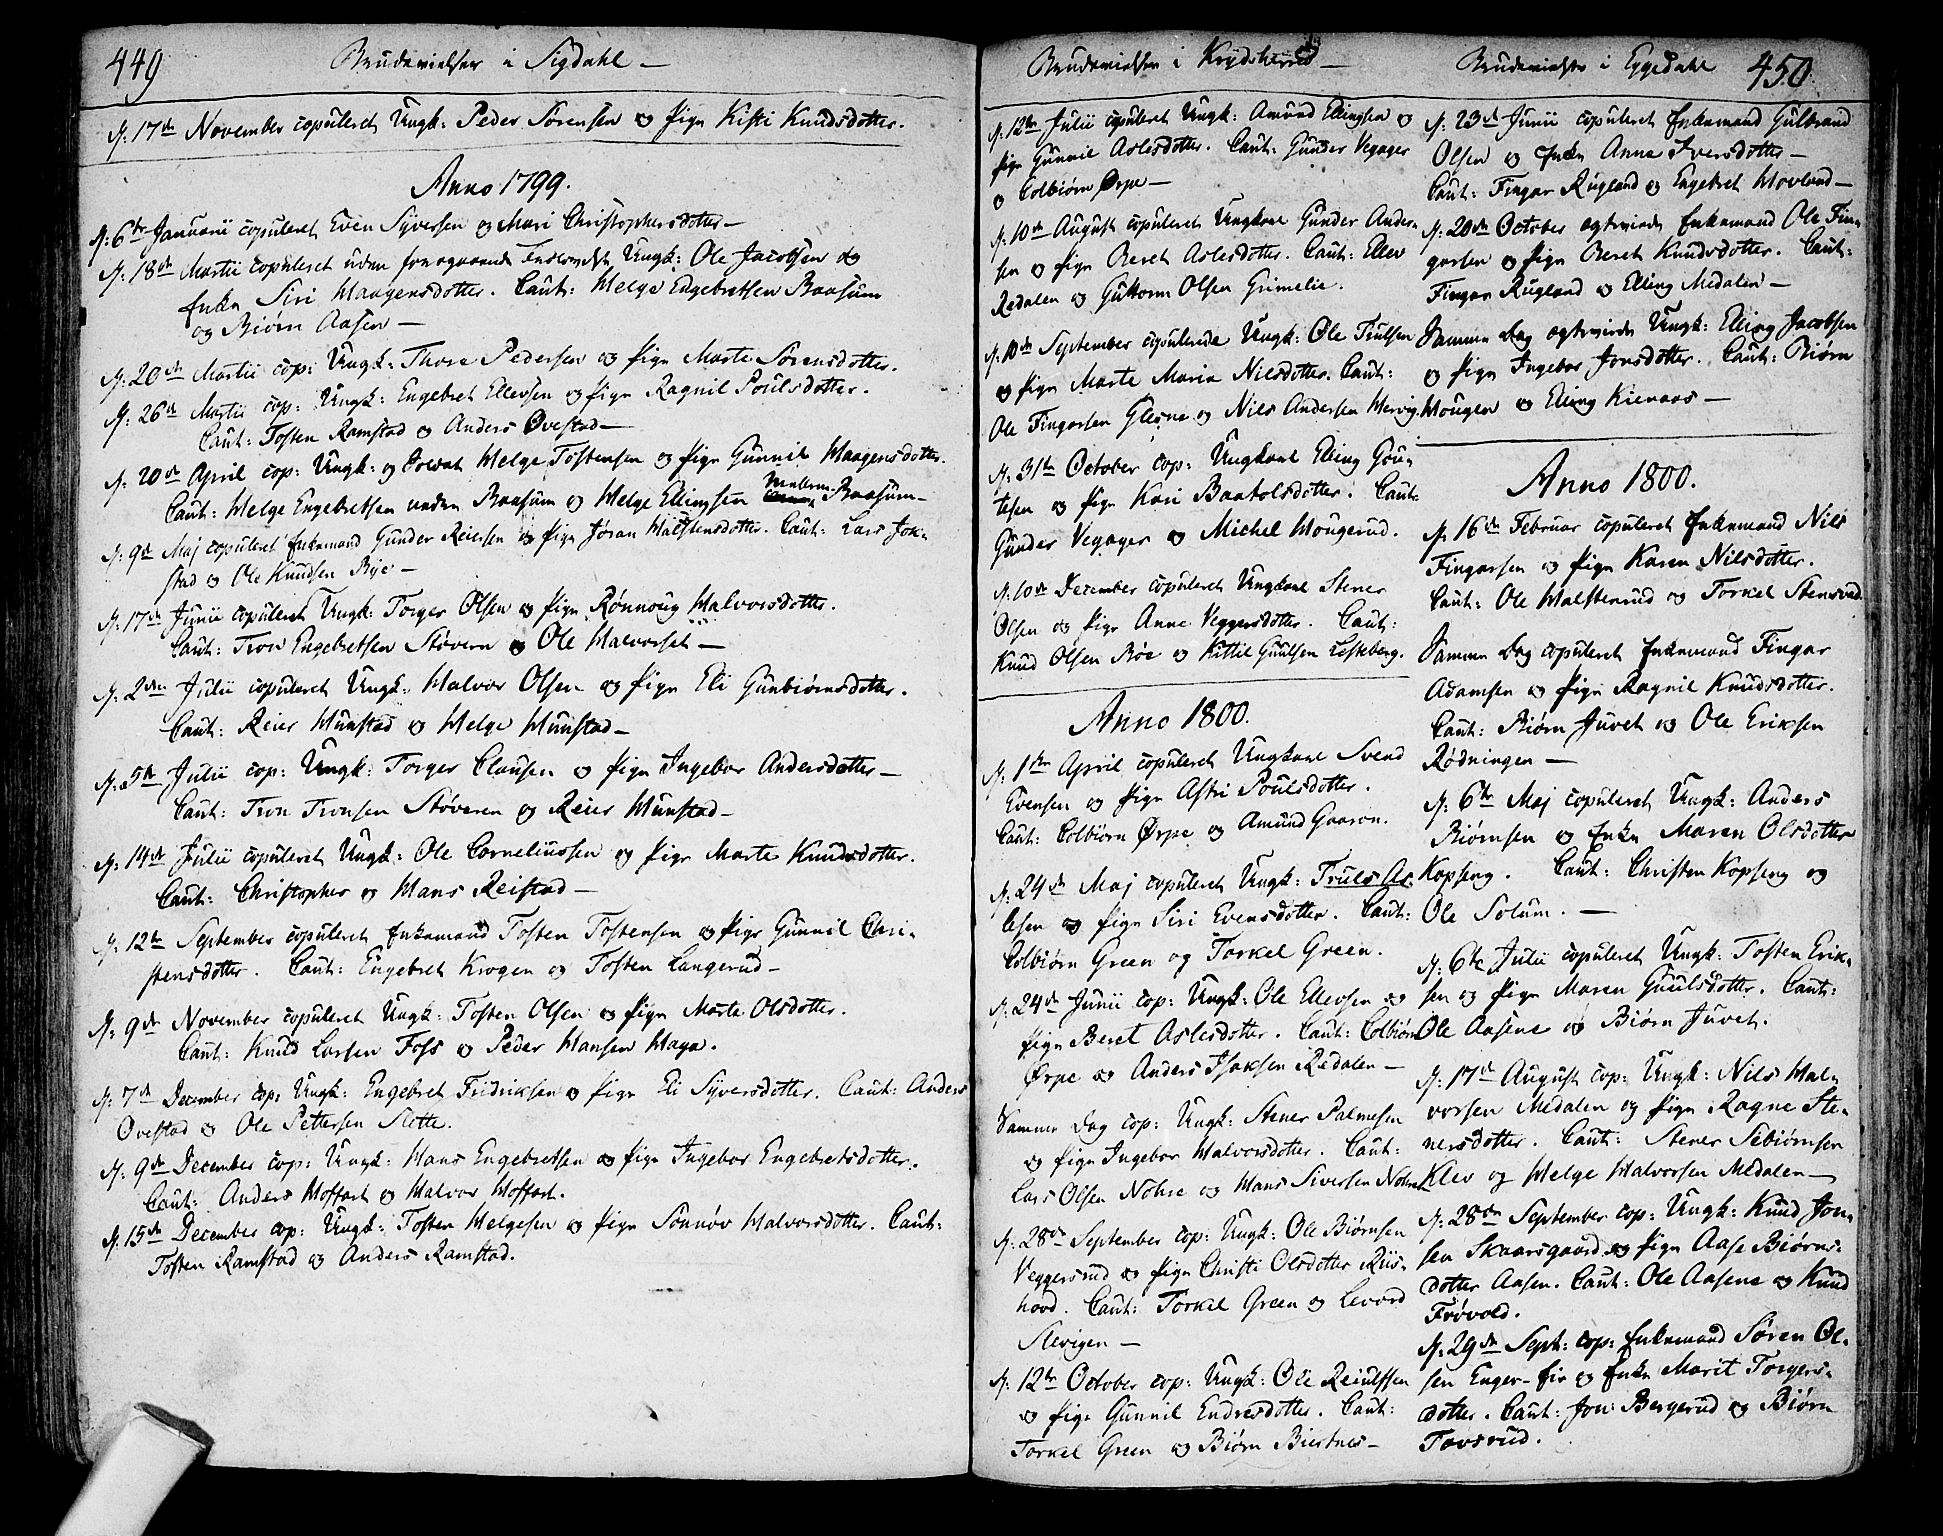 449 Brudevielser i Sigdahl —
N: 17de November copuleret Ungk: Peder Sørensen og Pige Kisti Knudsdotter.
Anno 1799.
N: 6te Januarii copuleret Even Syversen og Mari Christophersdotter —
N: 18de Martii copuleret uden foregaaende Ungk: Ole Jacobsen og
Enke Siri Haagensdotter. Caut: Helge Engebretsen Baasum
og Biørn Aasen —
N: 20de Martii cop: Ungk: Thore Pedersen og Pige Marte Sørensdotter.
N: 26de Martii cop: Ungk: Engebret Ellevsen og Pige Ragnil Poulsdotter.
Caut: Tosten Ramstad og Anders Ovestad —
N: 20de April cop: Ungk: og Soldat Helge Tostensen og Pige Gunnil Haagensdotter.
Caut: Helge Engebretsen neden Baasum og Helge Ellingsen Baasum —
N: 9de Maj copuleret Enkemand Gunder Reiersen og Pige Jøran Halstensdotter. Caut: Lars Jok-
stad og Ole Knudsen Bye —
N: 17de Junii copuleret Ungk: Torger Olsen og Pige Rønnoug Halvorsdotter.
Caut: Tron Engebretsen Støvern og Ole Halvorset —
N: 2den Julii copuleret Ungk: Halvor Olsen og Pige Eli Gunbiørnsdotter.
Caut: Reier Hunstad og Helge Hunstad —
N: 5te Julii cop: Ungk: Torger Clausen og Pige Ingebor Andersdotter —
Caut: Tron Tronsen Støveren og Reier Hunstad —
N: 14de Julii copuleret Ungk: Ole Corneliussen og Pige Marte Knudsdotter.
Caut: Christopher og Hans Reistad —
N: 12te September copuleret Enkemand Tosten Tostensen og Pige Gunnil Chri-
stensdotter. Caut: Engebret Krogen og Tosten Langerud —
N: 9de November copuleret Ungk: Tosten Olsen og Pige Marte Olsdotter.
Caut: Knud Larsen Foss og Peder Hansen Haga.
N: 7de December cop: Ungk: Engebret Fridriksen og Pige Eli Syversdotter. Caut: Anders
Ovestad og Ole Pettersen Slette.
N: 9de December cop: Ungk: Hans Engebretsen og Pige Ingebor Engebretsdotter.
Caut: Anders Hoffart og Halvor Hoffart.
N: 15de December cop: Ungk: Tosten Helgesen og Pige Sønnøv Halvorsdotter. Caut:
Tosten Ramstad og Anders Ramstad.
Brudevielser i Krydsherred —
N: 12te Julii copuleret Ungk: Amund Ellingsen og
Pige Gunnil Aslesdotter. Caut: Gunder Vegager
og Colbiørn Ørpe —
N: 10de August copuleret Ungkarl Gunder Ander-
sen og Pige Beret Aslesdotter. Caut: Ellev
Redalen og Guttorm Olsen Grimelie.
N: 10de September copulerede Ungk: Ole Trulsen
og Pige Marte Maria Nilsdotter. Caut:
Ole Fingarsen Glesne og Nils Andersen Hervig.
N: 31te October cop: Ungkarl Elling Gou-
tesen og Pige Kari Baartolsdotter. Caut:
Gunder Vegager og Michel Hougerud.
N: 10de December copuleret Ungkarl Stener
Olsen og Pige Anne Veggersdotter. Caut:
Knud Olsen Røe og Kittil Guulsen Lesteberg.
Anno 1800.
N: 1ste April copuleret Ungkarl Svend
Evensen og Pige Astri Poulsdotter.
Caut: Colbiørn Ørpe og Amund Gaaren.
N: 24de Maj copuleret Ungk: Truls As-
lesen og Pige Siri Evensdotter. Caut:
Colbiørn Green og Torkel Green.
N: 24de Junii cop: Ungk: Ole Ellevsen og
Pige Beret Aslesdotter. Caut: Colbiørn
Ørpe og Anders Isaksen Redalen —
Samme Dag cop: Ungk: Stener Palmesen
og Pige Ingebor Halvorsdotter. Caut:
Lars Olsen Nohre og Hans Siversen Nohre
N: 28de September cop: Ungk: Ole Biørnsen
Veggersrud og Pige Christi Olsdotter Riis-
hovd. Caut: Torkel Green og Levord
Slevigen —
N: 12te October cop: Ungk: Ole Reiulfsen
og Pige Gunnil Endresdotter. Caut:
Torkel Green og Biørn Biertnes —
Brudevielser i Eggedahl 450.
N: 23de Junii copuleret Enkemand Gulbrand
Olsen og Enke Anne Iversdotter —
Caut: Fingar Rugland og Engebret Hovland —
N: 20de October egteviede Enkemand Ole Fin-
garsen og Pige Beret Knudsdotter. Caut:
Fingar Rugland og Elling Medalen —
Samme Dag egteviede Ungk: Elling Jacobsen
og Pige Ingebor Jonsdotter. Caut: Biørn
Hougen og Elling Kienaas —
Anno 1800.
N: 16de Februar copuleret Enkemand Nils
Fingarsen og Pige Karen Nilsdotter.
Caut: Ole Halstenrud og Torkel Stensrud.
Samme Dag copuleret Enkemand Fingar
Adamsen og Pige Ragnil Knudsdotter.
Caut: Biørn Juvet og Ole Eriksen
Rødningen —
N: 6te Maj copuleret Ungk: Anders
Biørnsen og Enke Maren Olsdotter
Kopseng. Caut: Christen Kopseng og
Ole Solum. —
N: 6te Julii copuleret Ungk: Tosten Erik-
sen og Pige Maren Guulsdotter. Caut:
Ole Aasene og Biørn Juvet.
N: 17de August cop: Ungk: Nils Hal-
vorsen Medalen og Pige Ragne Ste-
nersdotter. Caut: Stener Sebiørnsen
Klev og Helge Halvorsen Medalen —
N: 28de September cop: Ungk: Knud Jon-
sen Skaarsgaard og Pige Aase Biørns-
dotter Aasen. Caut: Ole Aasene og Knud
Frøvold.
N: 29de Sept: cop: Enkemand Søren Ol-
sen Enger-Eie og Enke Marit Torgers-
dotter. Caut: Jon Bergerud og Biørn
Tovsrud.